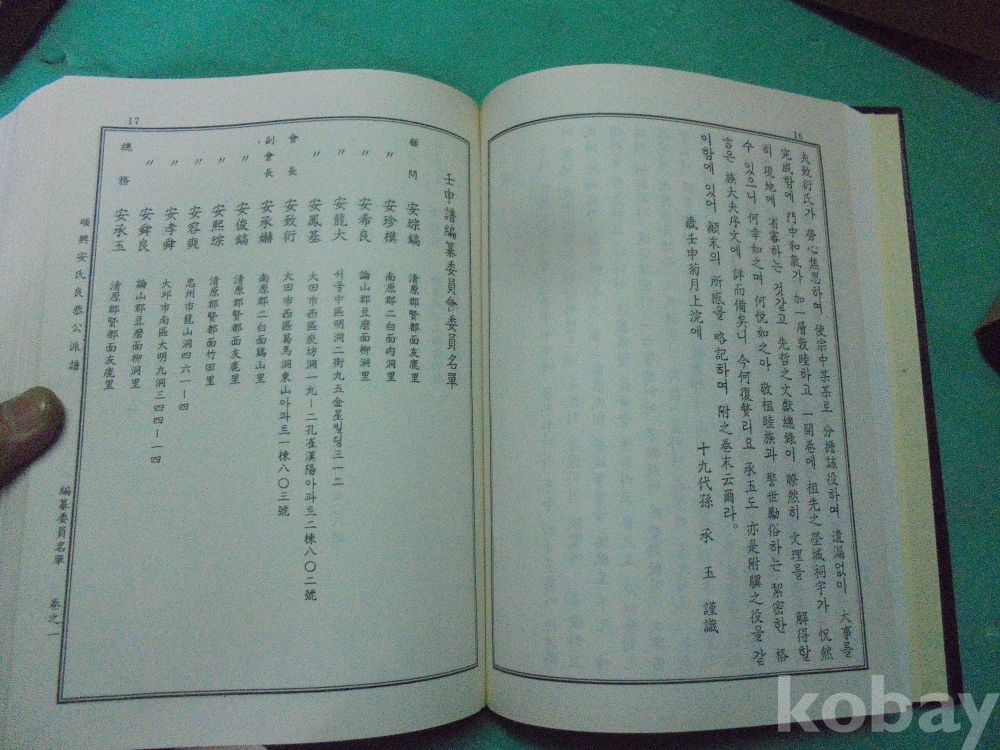 16
夫致衍氏가 勞心焦思하여 使宗中某某로 分擔該役하여 遺漏없이 大事를
完成함에 門中和氣가 加一層敦睦하고 一開卷에 祖先之塋域祠宇가 怳然
히 現地에 省審하는 것같고 先哲之文獻總錄이 瞭然히 文理를 解得할
수 있으니 何幸如之며 何悅如之아 敬祖睦族과 警世勵俗하는 緊密한 格
言은 族大夫序文에 詳而備矣니 今何復贅리요 承玉도 亦是附驥之役을 같
이함에 있어 顚末의 所感을 略記하여 附之卷末云爾라。
歲壬申菊月上浣에
十九代孫 承玉 謹識
17
壬申譜編纂委員會委員名單
顧問 安琮鎬 清原郡賢都面友鹿里
〃 安珍模 南原郡二白面内洞里
〃 安希良 論山郡豆磨面柳洞里
〃 安龍大 서울中區明洞二街九五金星빌딩三一二
〃 安鳳基 大田市西區炭坊洞一九ー二孔雀漢陽아파트二棟八〇二號
會長 安致衍 大田市西區葛馬洞東山아파트一棟八〇三號
副會長 安承赫 南原郡二白面鷄山里
〃 安俊鎬 清原郡賢都面友鹿里
〃 安熙琮 清原郡賢都面竹田里
〃 安容爽 忠州市龍山洞四六一ー四
〃 安孝舜 大邱市南區大明九洞三四四ー一四
〃 安舜良 論山郡豆磨面柳洞里
總務 安承玉 清原郡賢都面友鹿里
順興安氏良恭公派譜
編纂委員名單
卷之一
kobay